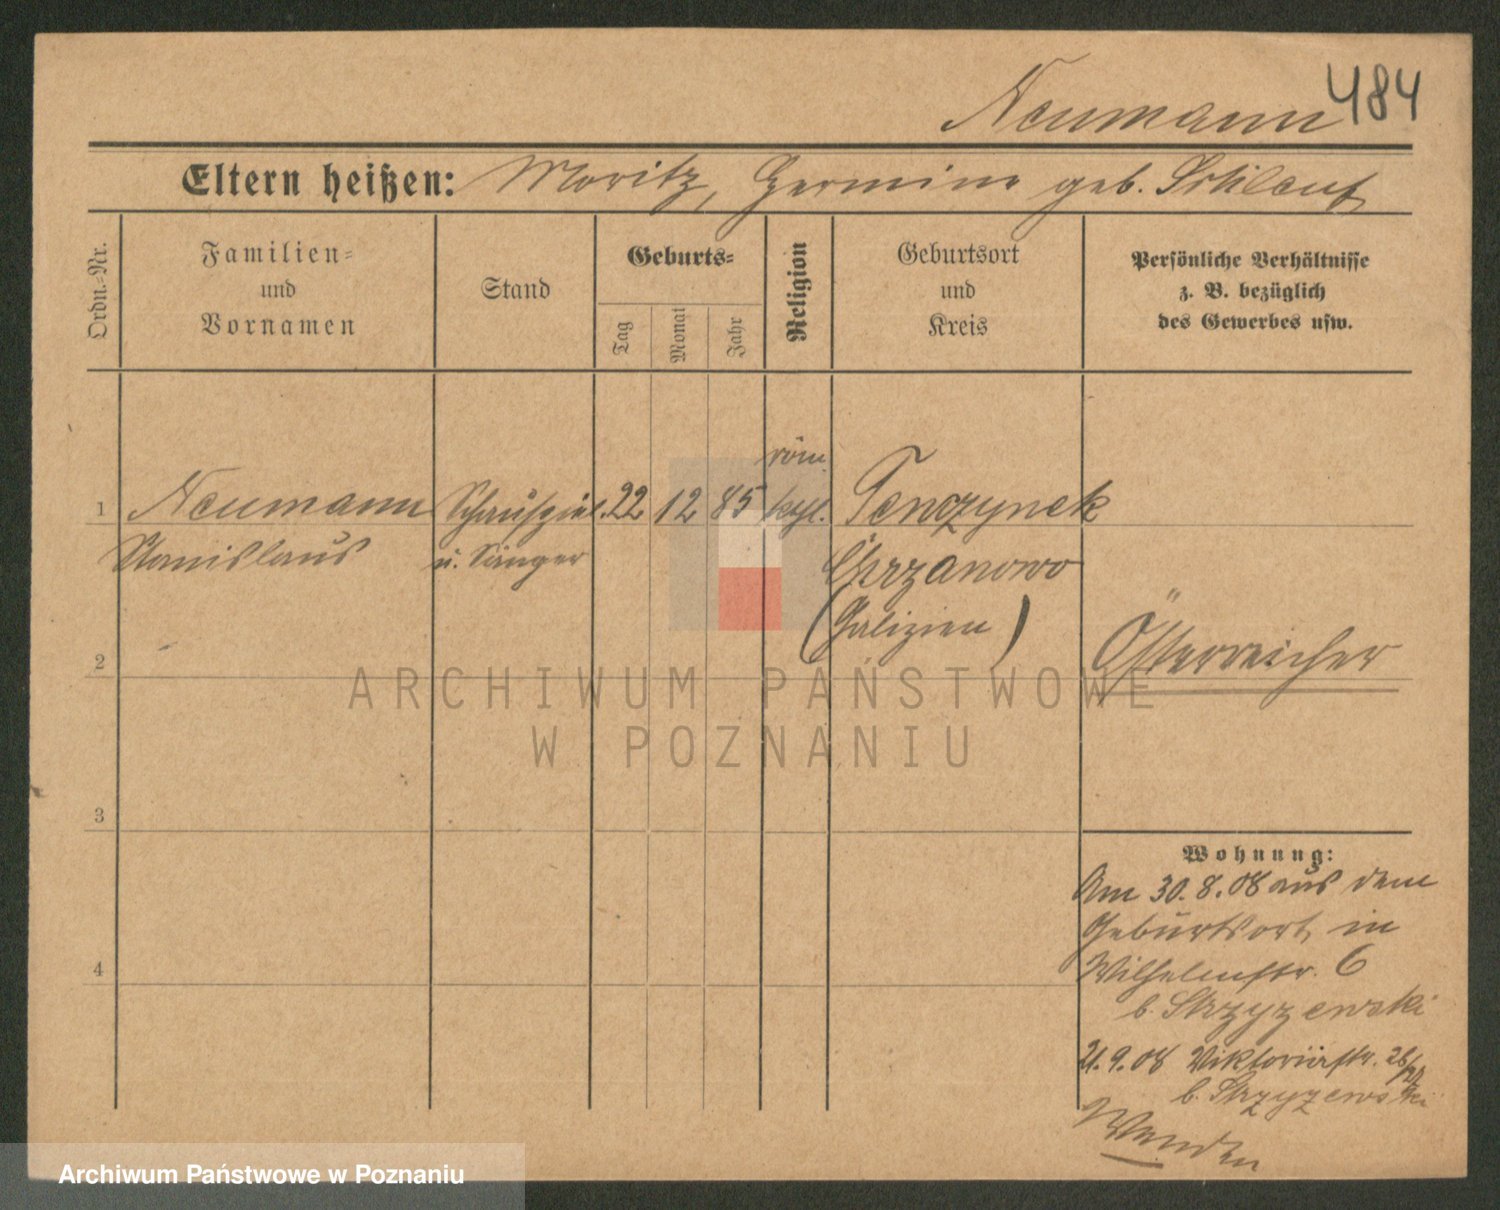 Neumann 484
Eltern heißen: Moritz, Hermine geb.
Ordn.-Nr.
Familien-
und
Vornamen
Stand
Geburts-
Tag
Monat
Jahr
Religion
Geburtsort
und
Kreis
Persönliche Verhältnisse
z. B. bezüglich
des Gewerbes usw.
röm.
1 Neumann Schauspiel. 22 12 85 kath. Tenczynek
Stanislaus u. Sänger Chrzanowo
(Galizien)
2 Österreicher
ARCHIWUM PAŃSTWOWE
W POZNANIU
3
Wohnung:
Am 30.8.08 aus dem
Geburtsort in
4 Wilhelmstr. 6
b. Strzyzewski
21.9.08 Viktoriastr. 26/27
b. Strzyzewski
Wenden
Archiwum Państwowe w Poznaniu